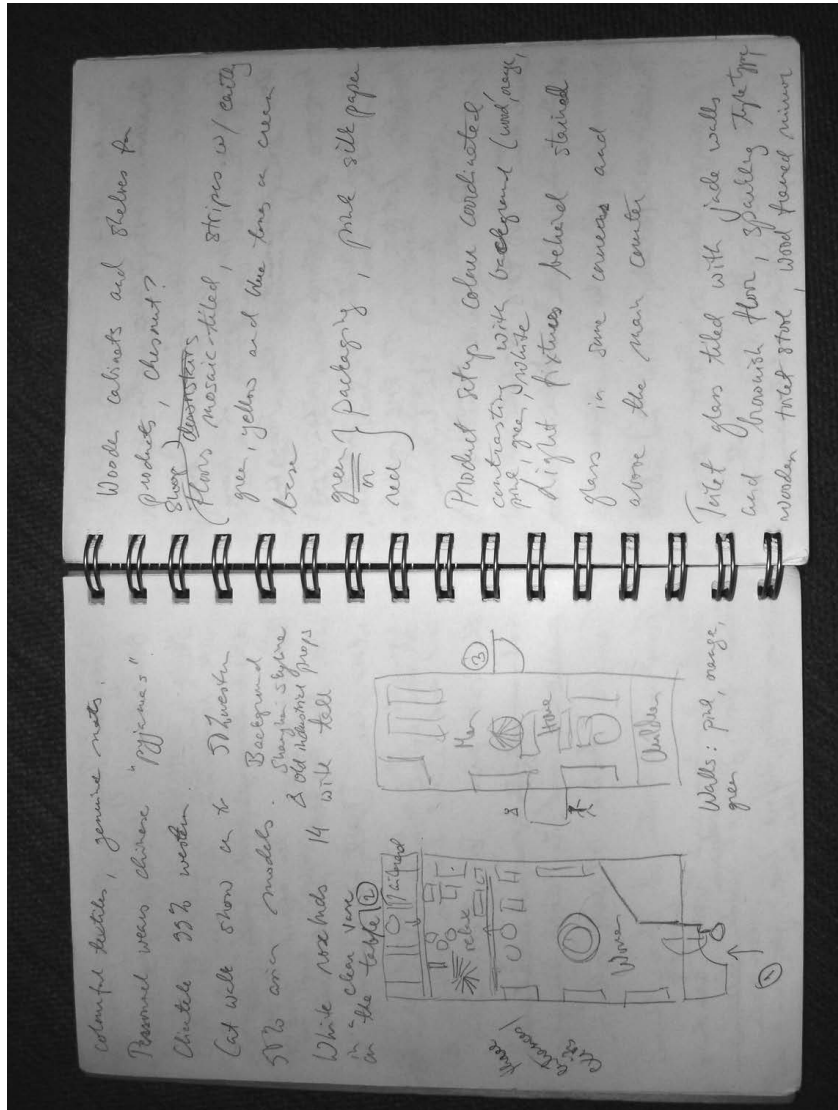 colourful textiles, genuine mats.
Personnel wears chinese "Pyjamas".
Clientele 95% western.
Cat walk show on tv 50% western
50% asian models. Background
Shanghai Skyline
& old industrial props
White rosebuds 14 with tall
in a clear vase
on the table
2
tailored
relax
Women
1
3
Men
Home
Children
Walls: pink, orange,
green
Wooden cabinets and shelves for
products, chesnut?
Shop downstairs
Floors mosaic-tiled, stripes w/ earthy
green, yellow and blue tones on cream
base
green
or
red
} packaging, pink silk paper
Product setup colour coordinated
contrasting with background (wood, orange,
pink, green, white
Light fixtures behind stained
glass in some corners and
above the main counter
Toilet glass tiled with jade walls
and brownish floor, sparkling type
wooden toilet store, wood framed mirror